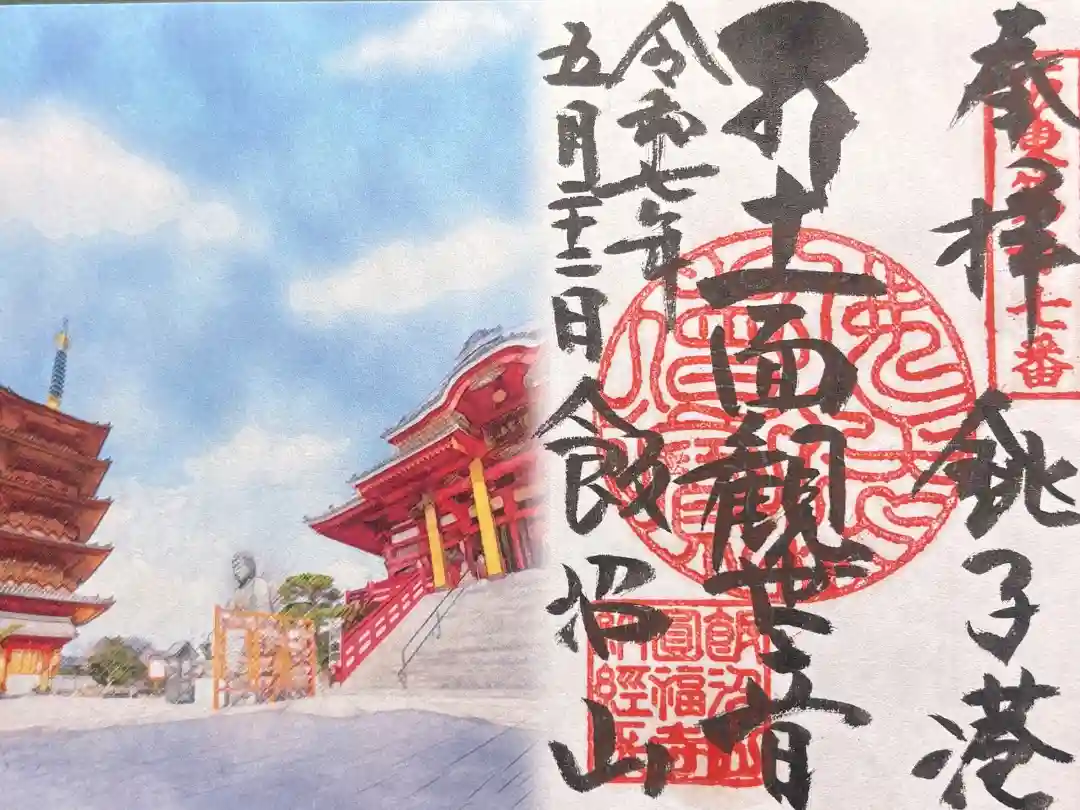 坂東第二十七番
奉拝 銚子港
十一面觀世音
令和七年
五月二十二日
飯沼山
飯沼山
圓福寺
納經